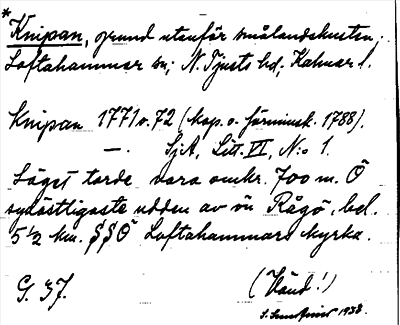 *Knipan, grund utanför smålandskusten;
Loftahammar sn; N. Tjusts hd, Kalmar l.
Knipan 1771 o. 72 (Kop. o. förminsk. 1788).
—. SjA, Litt. VI, N:o 1.
Läget torde vara omkr. 700 m. Ö
sydöstligaste udden av ön Rågö, bel.
5 1/2 km. SSÖ Loftahammars kyrka.
G. 37. (Vänd!)
1938.